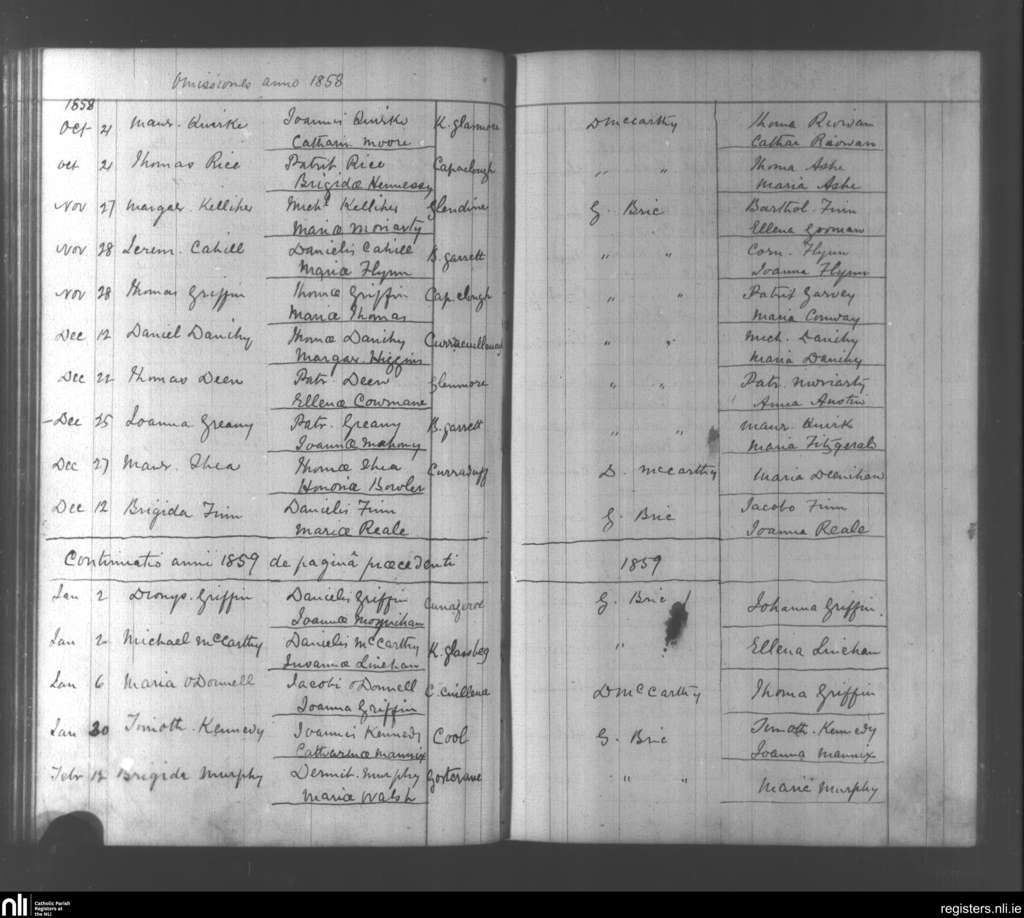 Omissiones anno 1858
1858
Oct 21 Maur. Quirke Joannis Quirke K. glasmore D McCarthy Thoma Riowan
Catharin Moore Cathar Riowan
Oct 2 Thomas Rice Patrit Rice Capaclough " " Thoma Ashe
Brigidæ Hennessy Maria Ashe
Nov 27 Margar. Kelliher Michl Kelliher Glendine G. Bric Barthol. Finn
Mariæ Moriarty Ellena
Nov 28 Jerem. Cahill Danielis Cahill B. garrett " " Corn. Flynn
Mariæ Flynn Joanna Flynn
Nov 28 Thomas Griffin Thomæ Griffin Cap. clough " " Patrit Garvey
Mariæ Thomas Maria Conway
Dec 12 Daniel Danihy Thomæ Danihy " " Mich. Danihy
Margar. Higgins Maria Danihy
Dec 22 Thomas Deen Patr. Deen Glenmore " " Patr. Moriarty
Ellenæ Cowmane Anna Austin
Dec 25 Joanna Greany Patr. Greany B. garrett " " Maur. Quirk
Joannæ Mahony Maria Fitzgerald
Dec 27 Maur. Shea Thomæ Shea Curraduff D. McCarthy Maria Deenihan
Honoriæ Bowler
Dec 12 Brigida Finn Danielis Finn G. Bric Jacobo Finn
Mariæ Reale Joanna Reale
Continuatio anni 1859 de paginâ præcedenti 1859
Jan 2 Dionys. Griffin Danielis Griffin G. Bric Johanna Griffin.
Joannæ Moynihan
Jan 2 Michael McCarthy Danielis McCarthy K. glassbeg " Ellena Linehan
Linehan
Jan 6 Maria O'Donnell Jacobi O'Donnell C. cuillena D McCarthy Thoma Griffin
Joanna Griffin
Jan 30 Timoth. Kennedy Joannis Kennedy Cool G. Bric Timoth. Kennedy
Catharinæ Mannix Joanna Mannix
Febr 12 Brigida Murphy Dermit. Murphy " " Marie Murphy
Mariæ Walsh
nli Catholic Parish
Registers at
the NLI
registers.nli.ie